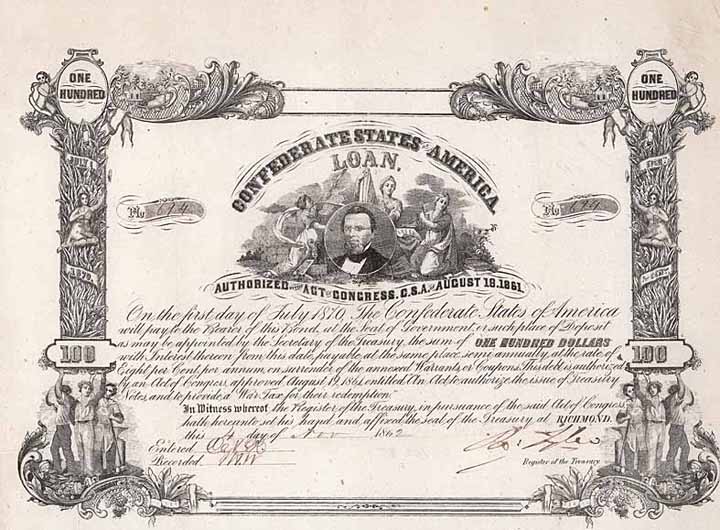 ONE HUNDRED
ONE HUNDRED
JULY 1
1876
CONFEDERATE STATES OF AMERICA
LOAN.
No 674
No 674
AUTHORIZED BY THE ACT OF CONGRESS, C.S.A. OF AUGUST 19. 1861.
On the first day of July 1876, The Confederate States of America
will pay to the Bearer of this Bond, at the Seat of Government, or such place of Deposit
as may be appointed by the Secretary of the Treasury, the sum of ONE HUNDRED DOLLARS
with Interest thereon from this date, payable at the same place semi-annually, at the rate of
Eight per Cent. per annum, on surrender of the annexed Warrants, or Coupons. This debt is authorized
by an Act of Congress, approved August 19, 1861, entitled An Act to authorize the issue of Treasury
Notes, and to provide a War Tax for their redemption.
In Witness whereof the Register of the Treasury, in pursuance of the said Act of Congress,
hath hereunto set his hand and affixed the Seal of the Treasury at RICHMOND.
this day of Nov 1862
Entered
Recorded
Register of the Treasury
100
100